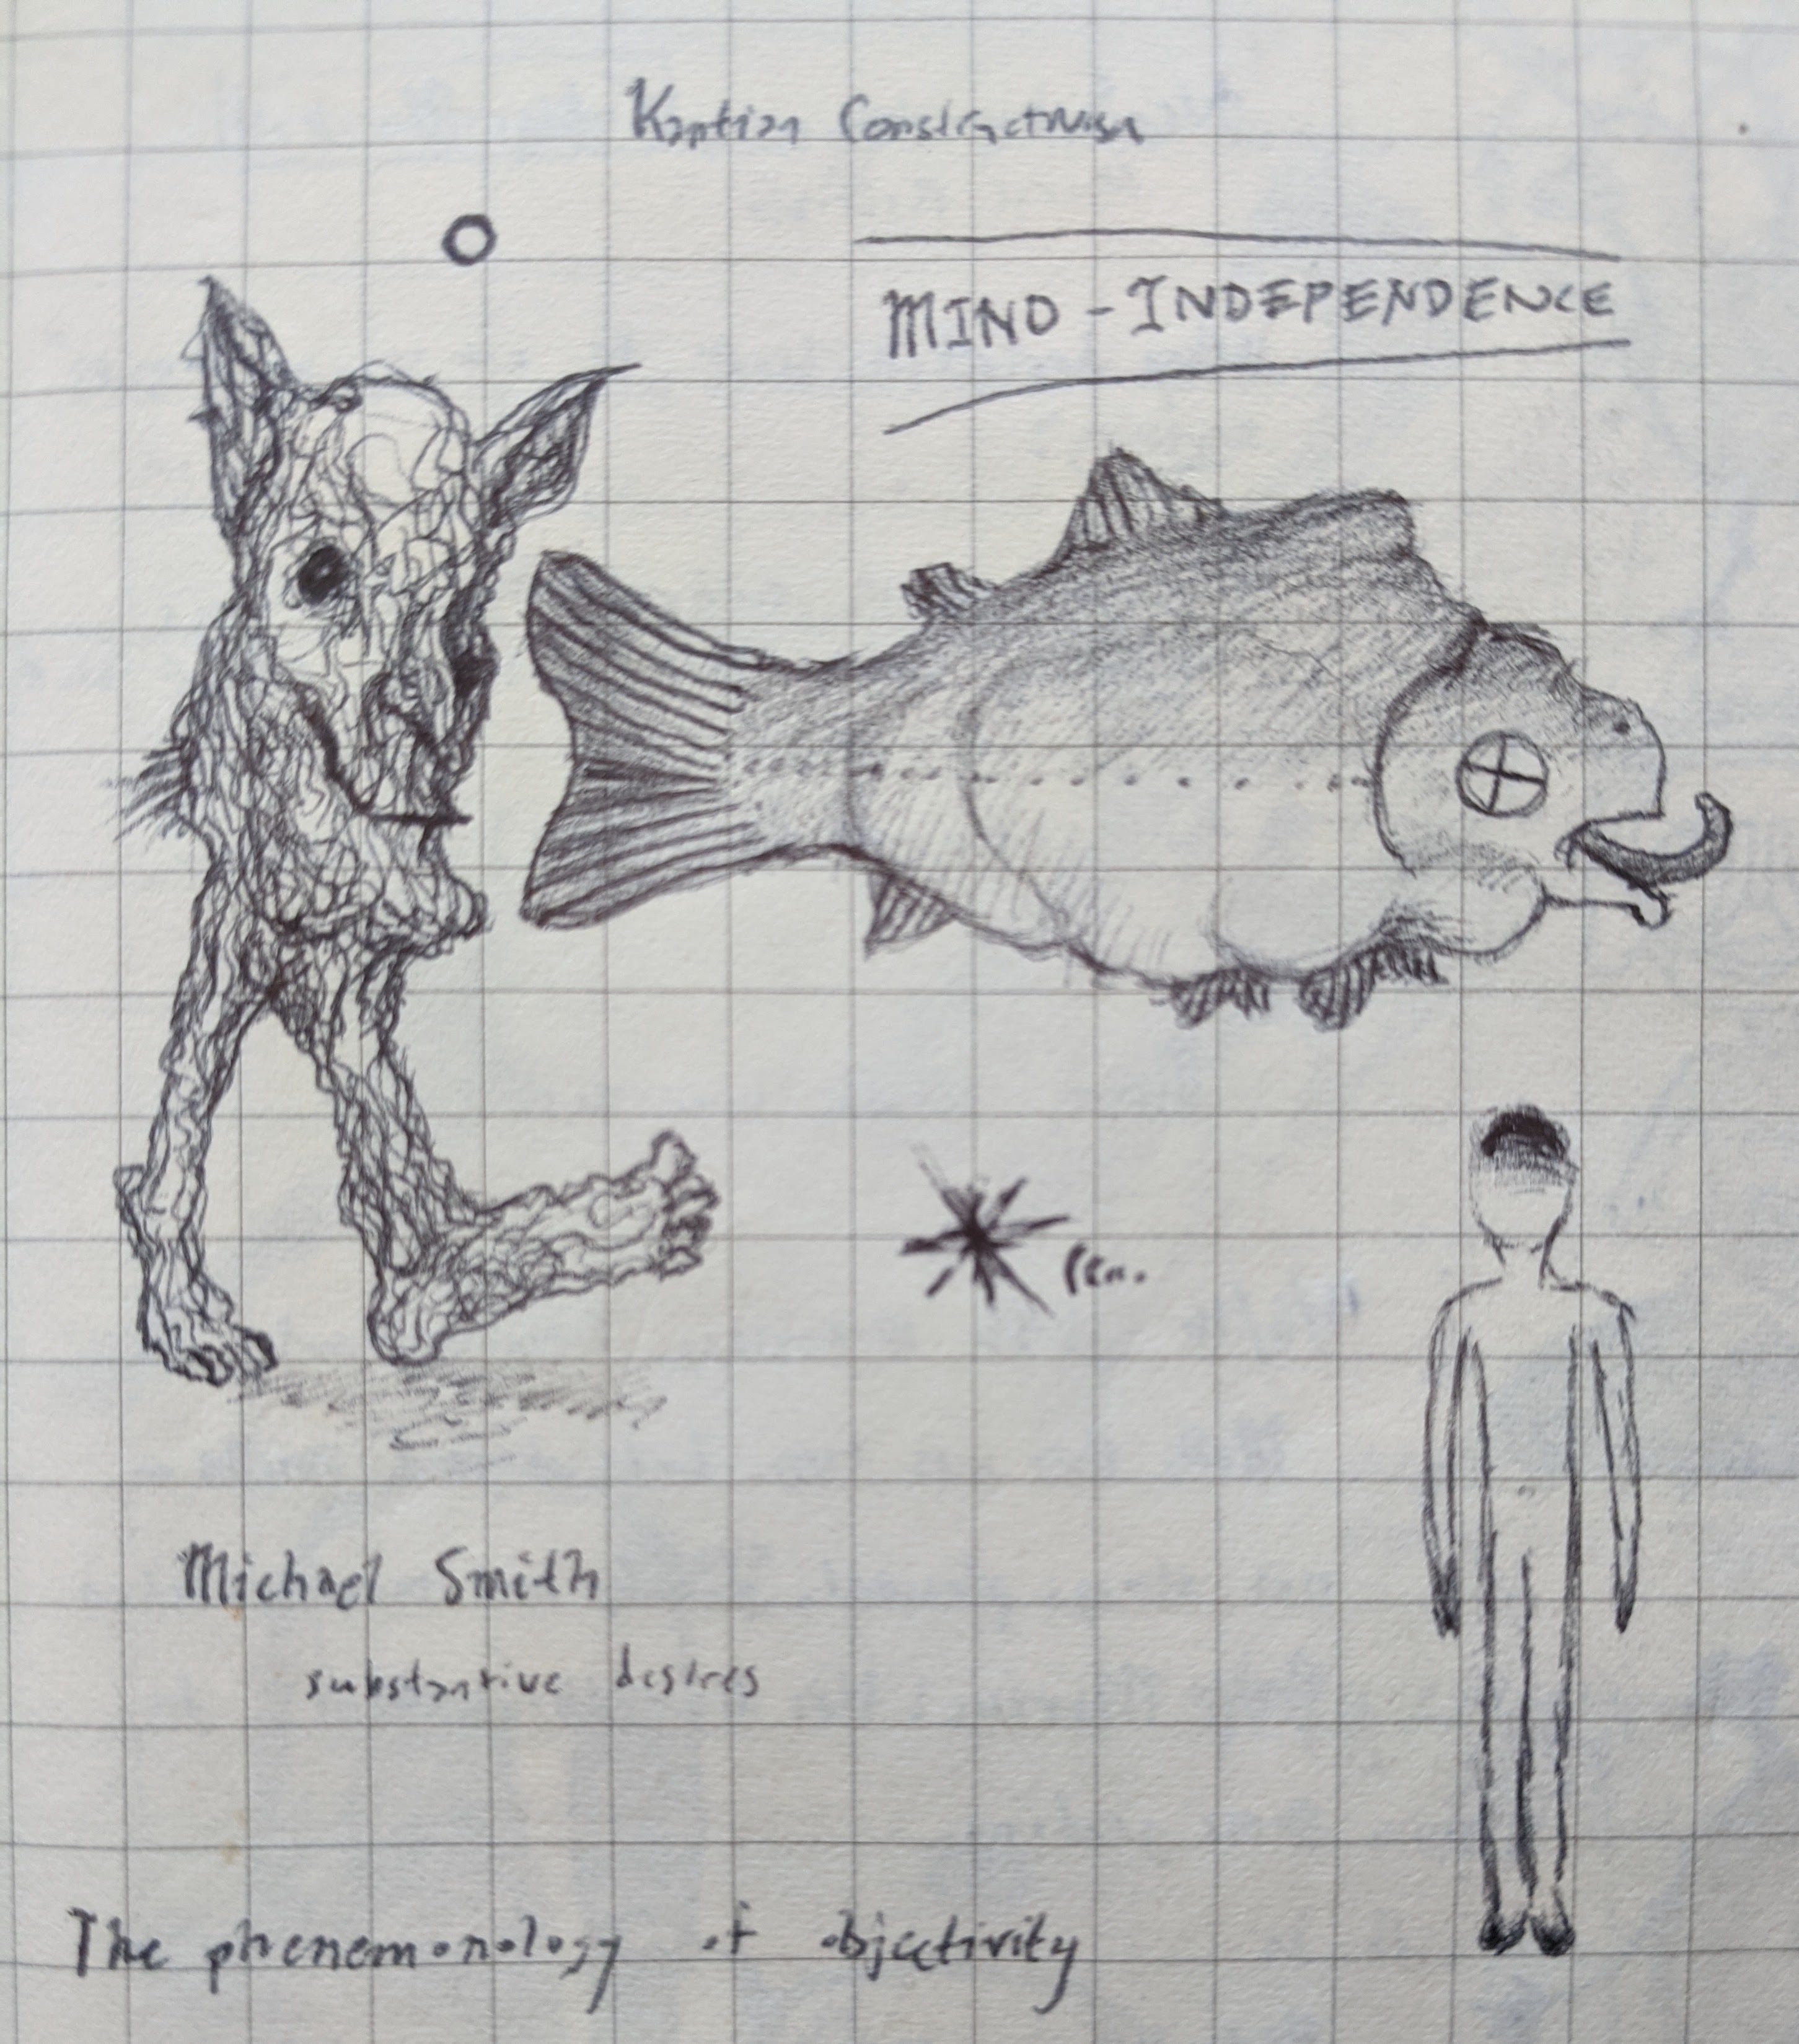 Kantian Constructivism
MIND - INDEPENDENCE
Michael Smith
substantive desires
The phenemonology of objectivity